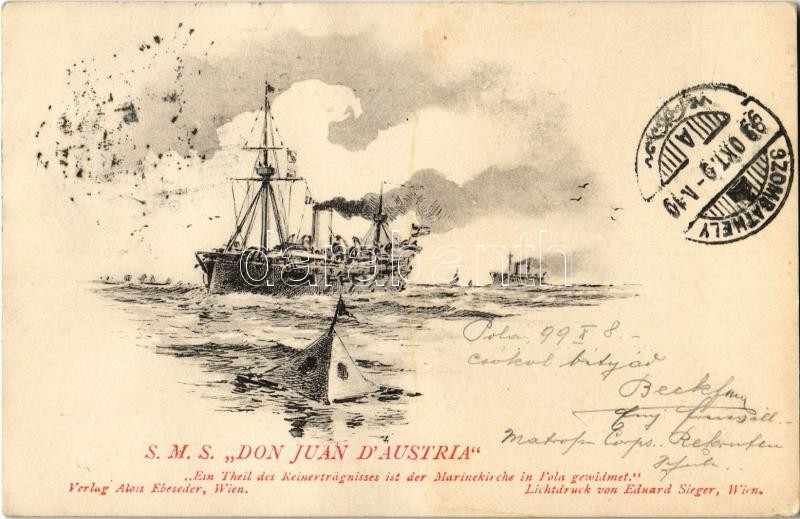 SZOMBATHELY
99 OKT. 9
A
darabanth
Pola, 99 X 8.-
csókol bátyád
Matrosen Corps. Rekruten
S. M. S. „DON JUAN D'AUSTRIA“
„Ein Theil des Reinerträgnisses ist der Marinekirche in Pola gewidmet.“
Verlag Alois Ebeseder, Wien. Lichtdruck von Eduard Sieger, Wien.